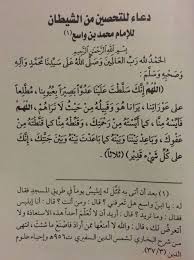 دعاء للتحصين من الشيطان
للإمام محمد بن واسع (١)
بسم الله الرحمن الرحيم
الحمد لله رب العالمين وصلى الله على سيدنا محمد وآله
وصحبه وسلم :
(اللهم إنك سلطت علينا عدوا بصيرا بعيوبنا ، مطلعا
على عوراتنا ، يرانا هو وقبيله من حيث لا نراهم ، اللهم
فآيسه منا كما آيسته من رحمتك ، وقنطه منا كما قنطته من
عفوك ، وباعد بيننا وبينه كما باعدت بينه وبين جنتك ، إنك
على كل شيء قدير ) (ثلاثا)
(١) بعد أن أتى به تمثل له إبليس يوما في طريق المسجد فقال
له : يا ابن واسع هل تعرفني ؟ قال : ومن أنت ؟ قال : أنا إبليس
قال : وما تريد ؟ قال : أريد أن لا تعلم أحدا هذه الاستعاذة ولا
أتعرض لك ، فقال : والله لا أمنعها ممن أراد فاصنع ما شئت ، انتهى
من شرح البخاري لشمس الدين السفيري ت ٩٥٦هـ وإحياء علوم
الدين (٣٧/٣)